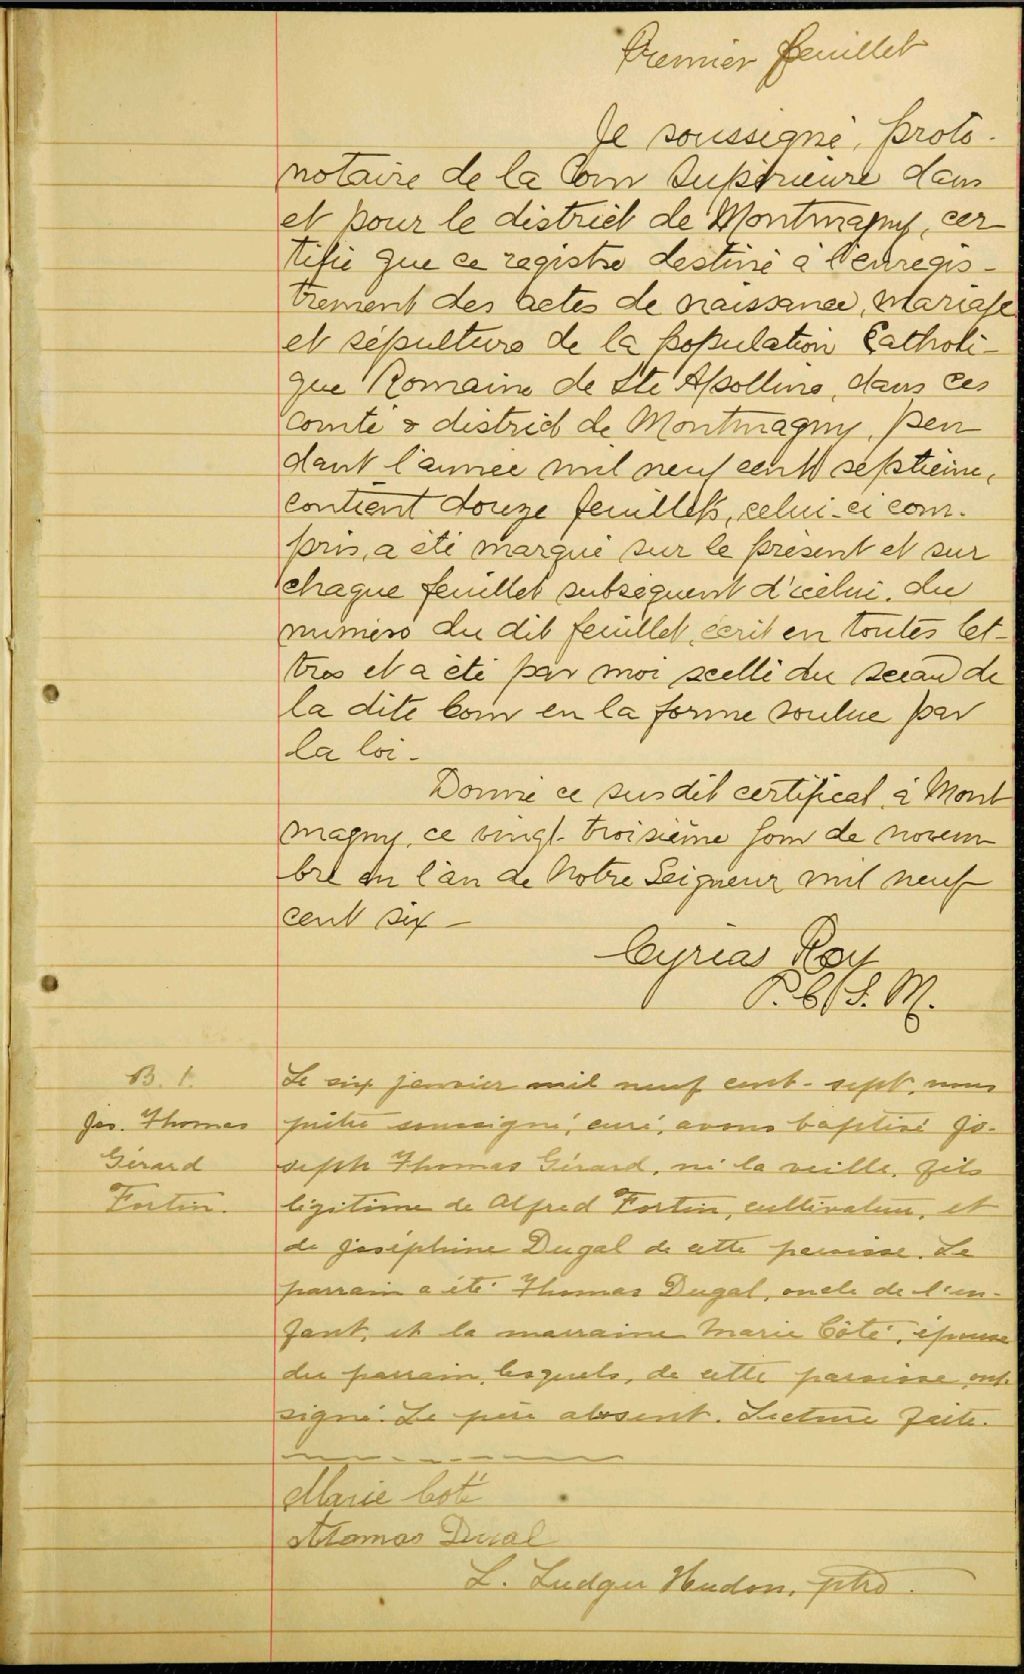 Premier feuillet
Je soussigné, proto-
notaire de la Cour Supérieure dans
et pour le district de Montmagny, cer-
tifie que ce registre destiné à l'enregis-
trement des actes de naissance, mariage
et sépulture de la population Catholi-
que Romaine de Ste Apolline, dans ces
comté & district de Montmagny, pen
dant l'année mil neuf cent septième,
contient douze feuillets, celui-ci com-
pris, a été marqué sur le présent et sur
chaque feuillet subséquent d'icelui, du
numéro du dit feuillet, écrit en toutes let-
tres et a été par moi scellé du sceau de
la dite Cour en la forme voulue par
la loi.
Donné ce susdit certificat, à Mont
magny, ce vingt-troisième jour de novem
bre en l'an de Notre Seigneur mil neuf
cent six
Cyrias Roy
P. C. S. M.
B. 1.
Jos. Thomas
Gérard
Fortin.
Le six janvier mil neuf cent-sept, nous
prêtre soussigné, curé, avons baptisé Jo-
seph Thomas Gérard, né la veille, fils
légitime de Alfred Fortin, cultivateur, et
de Joséphine Dugal de cette paroisse. Le
parrain a été Thomas Dugal, oncle de l'en-
fant, et la marraine Marie Côté, épouse
du parrain, lesquels, de cette paroisse, ont
signé. Le père absent. Lecture faite.
Marie Coté
Thomas Dugal
L. Ludger Hudon, ptre.